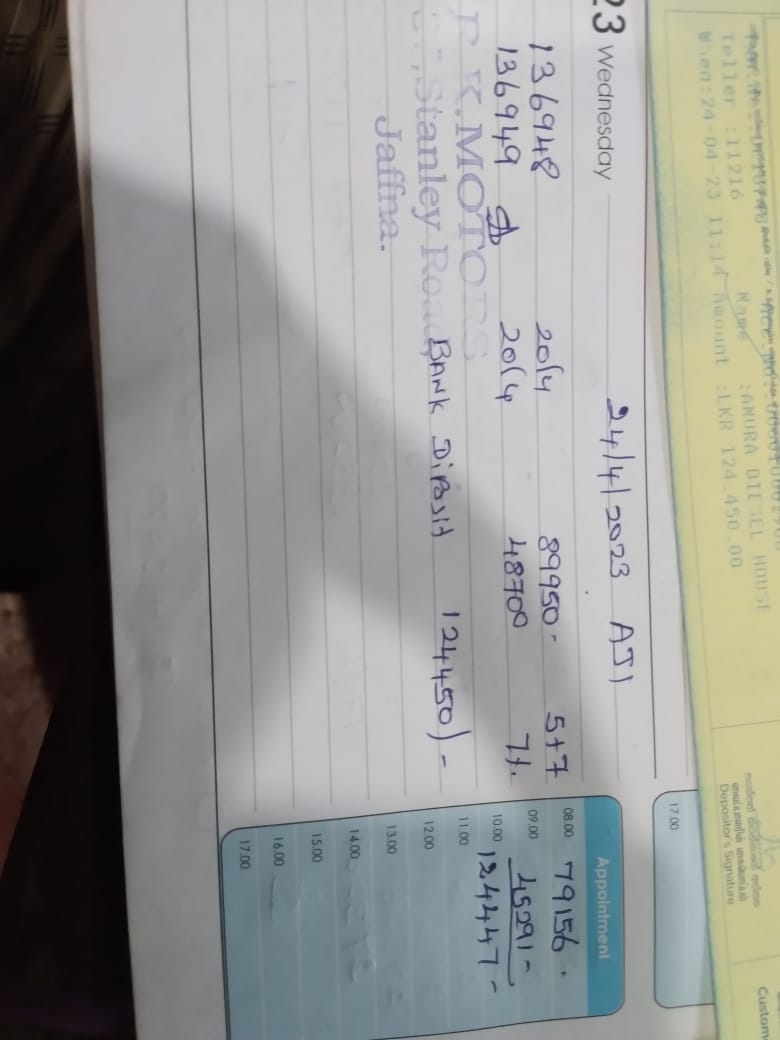 Teller :11216
Name :AMURA DIESEL HOUSE
When:24-04-23 11:14 Amount :LKR 124,450.00
Depositor's Signature
Custom
17.00
23 Wednesday
24/4/2023 AJI
136948 20/4 89950- 5+7
136949 20/4 48700 7%
P.K.MOTORS
Stanley Road,
Jaffna.
BANK Diposit 124450/-
Appointment
08.00 79156.
09.00 45291-
10.00 124447-
11.00
12.00
13.00
14.00
15.00
16.00
17.00